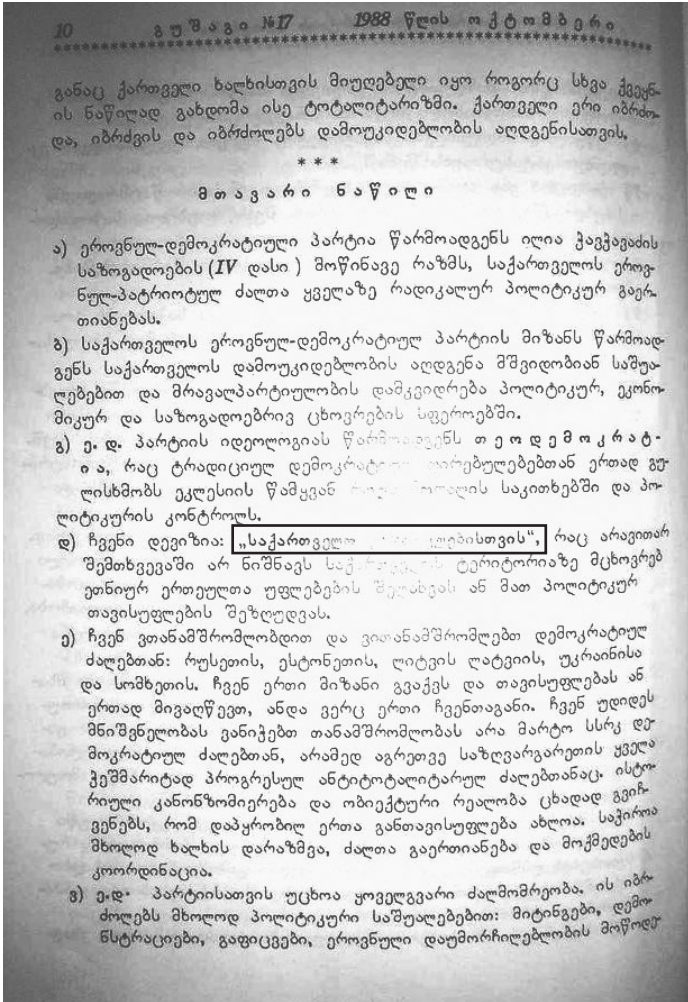 10 გუშაგი №17 1988 წლის ოქტომბერი
განაც ქართველი ხალხისთვის მიუღებელი იყო როგორც სხვა ქვეყნ-
ის ნაწილად გახდომა ისე ტოტალიტარიზმი. ქართველი ერი იბრძო-
და, იბრძვის და იბრძოლებს დამოუკიდებლობის აღდგენისათვის.
* * *
მთავარი ნაწილი
ა) ეროვნულ-დემოკრატიული პარტია წარმოადგენს ილია ჭავჭავაძის
საზოგადოების (IV დასი) მოწინავე რაზმს, საქართველოს ეროვ-
ნულ-პატრიოტულ ძალთა ყველაზე რადიკალურ პოლიტიკურ გაერ-
თიანებას.
ბ) საქართველოს ეროვნულ-დემოკრატიულ პარტიის მიზანს წარმოად-
გენს საქართველოს დამოუკიდებლობის აღდგენა მშვიდობიან საშუა-
ლებებით და მრავალპარტიულობის დამკვიდრება პოლიტიკურ, ეკონო-
მიკურ და საზოგადოებრივ ცხოვრების სფეროებში.
გ) ე. დ. პარტიის იდეოლოგიას წარმოადგენს თეოდემოკრატ-
ია, რაც ტრადიციულ დემოკრატიულ ღირებულებებთან ერთად გუ-
ლისხმობს ეკლესიის წამყვან საკითხებში და პო-
ლიტიკურის კონტროლს.
დ) ჩვენი დევიზია: „საქართველო რაც არავითარ
შემთხვევაში არ ნიშნავს საქართველოს ტერიტორიაზე მცხოვრებ
ეთნიურ ერთეულთა უფლებების შელახვას ან მათ პოლიტიკურ
თავისუფლების შეზღუდვას.
ე) ჩვენ ვთანამშრომლობდით და ვითანამშრომლებთ დემოკრატიულ
ძალებთან: რუსეთის, ესტონეთის, ლიტვის ლატვიის, უკრაინისა
და სომხეთის. ჩვენ ერთი მიზანი გვაქვს და თავისუფლებას ან
ერთად მივაღწევთ, ანდა ვერც ერთი ჩვენთაგანი. ჩვენ უდიდეს
მნიშვნელობას ვანიჭებთ თანამშრომლობას არა მარტო სსრკ დე-
მოკრატიულ ძალებთან, არამედ აგრეთვე საზღვარგარეთის ყველა
ჭეშმარიტად პროგრესულ ანტიტოტალიტარულ ძალებთანაც. ისტო-
რიული კანონზომიერება და ობიექტური რეალობა ცხადად გვიჩ-
ვენებს, რომ დაპყრობილ ერთა განთავისუფლება ახლოა. საჭიროა
მხოლოდ ხალხის დარაზმვა, ძალთა გაერთიანება და მოქმედების
კოორდინაცია.
ვ) ე.დ. პარტიისათვის უცხოა ყოველგვარი ძალმომრეობა. ის იბრ-
ძოლებს მხოლოდ პოლიტიკური საშუალებებით: მიტინგები, დემო-
ნსტრაციები, გაფიცვები, ეროვნული დაუმორჩილებლობის მოწოდე-